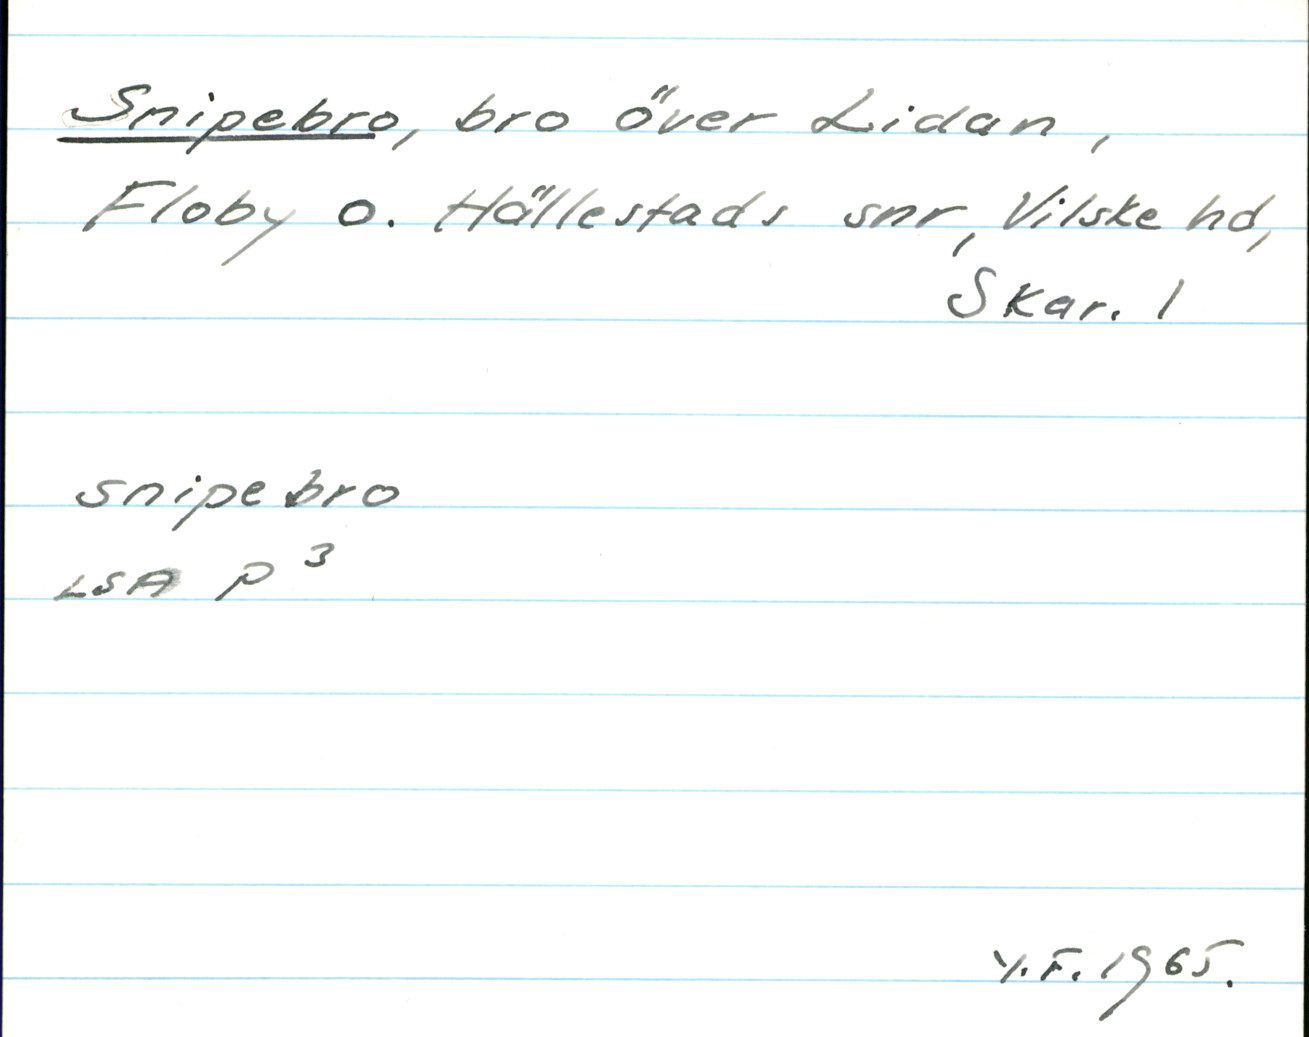 Snipebro, bro över Lidan,
Floby o. Hällestads snr, Vilske hd,
Skar. l
snipebro
LSA P 3
Y.F. 1965.